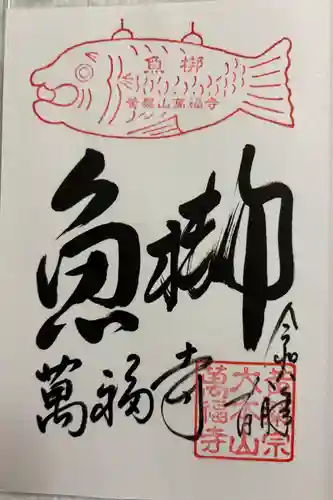 魚梆
黄檗山萬福寺
魚梆
萬福寺
令和
黄檗宗
大本山
萬福寺